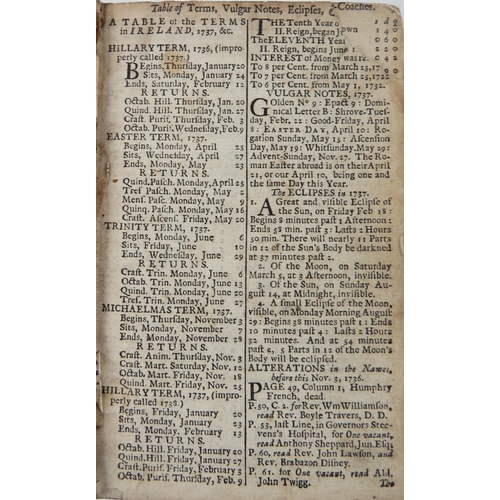 Table of Terms, Vulgar Notes, Eclipses, &-Coaches.
A TABLE of the TERMS
in IRELAND, 1737, &c.
HILLARY TERM, 1736, (impro-
perly called 1737.)
Begins, Thursday, January 20
Sits, Monday, January 24
Ends, Saturday, February
RETURNS.
Octab. Hill. Thursday, Jan. 20
Quind. Hill. Thursday, Jan. 27
Craft. Purif. Thursday, Feb. 3
Octab. Purif. Wednesday, Feb. 9
EASTER TERM, 1737.
Begins, Monday, April 25
Sits, Wednesday, April 27
Ends, Monday, May 23
RETURNS.
Quind. Pasch. Monday, April 25
Tres Pasch. Monday, May 2
Mens. Pasc. Monday, May 9
Quinq. Pasch. Monday, May 16
Craft. Ascens. Friday, May 20
TRINITY TERM, 1737.
Begins, Monday, June 6
Sits, Friday, June 10
Ends, Wednesday, June 29
RETURNS.
Craft. Trin. Monday, June 6
Octab. Trin. Monday, June 13
Quind. Trin. Monday, June 20
Tres. Trin. Monday, June 27
MICHAELMAS TERM, 1737.
Begins, Thursday, November 3
Sits, Monday, November 7
Ends, Monday, November
RETURNS.
Craft. Anim. Thursday, Nov. 3
Craft. Mart. Saturday, Nov. 12
Octab. Mart. Friday, Nov. 18
Quind. Mart. Friday, Nov. 25
HILLARY TERM, 1737, (impro-
perly called 1738.)
Begins, Friday, January 20
Sits, Monday, January
Ends, Monday, February 13
RETURNS.
Octab. Hill. Friday, January 20
Quind. Hill. Friday, January 27
Craft. Purif. Friday, February 3
Octab. Purif. Thursday, Feb. 9
THE Tenth Year o
II. Reign, began J
The ELEVENTH Year
II. Reign, begins June
INTEREST of Money was
To 8 per Cent. from March 25, 17
To 7 per Cent. from March 25, 1722
To 6 per Cent. from May 1, 1732.
VULGAR NOTES, 1737.
Golden No 9: Epact 9: Domi-
nical Letter B: Shrove-Tues-
day, Febr. 22: Good-Friday, April
8: EASTER DAY, April 10: Ro-
gation Sunday, May 15: Ascension
Day, May 19: Whitsunday, May 29:
Advent-Sunday, Nov. 27. The Ro-
man Easter abroad is on their April
21, or our April 10, being one and
the same Day this Year.
The ECLIPSES in 1737.
1. A Great and visible Eclipse of
the Sun, on Friday Feb 18:
Begins 8 minutes past 1 Afternoon:
Ends 58 min. past 3: Lasts 2 Hours
50 min. There will nearly 11 Parts
in 12 of the Sun's Body be darkned
at 37 minutes past 2.
2. Of the Moon, on Saturday
March 5, at 3 Afternoon, invisible.
3. Of the Sun, on Sunday Au-
gust 14, at Midnight, invisible.
4. A small Eclipse of the Moon,
visible, on Monday Morning August
29: Begins 38 minutes past 1: Ends
10 minutes past 4: Lasts 2 Hours
32 minutes. And at 54 minutes
past 2, 5 Parts in 12 of the Moon's
Body will be eclipsed.
ALTERATIONS in the Names,
before this Nov. 3, 1736.
PAGE 49, Column 1, Humphry
French, dead.
P. 50, C 2. for Rev. Wm Williamson,
read Rev. Boyle Travers, D. D.
P. 53, last Line, in Governors Stee-
vens's Hospital, for One vacant,
read Anthony Sheppard, Jun. Esq;
P. 60, read Rev. John Lawson, and
Rev. Brabazon Disney.
P. 61. for One vacant, read Ald.
John Twigg.
The